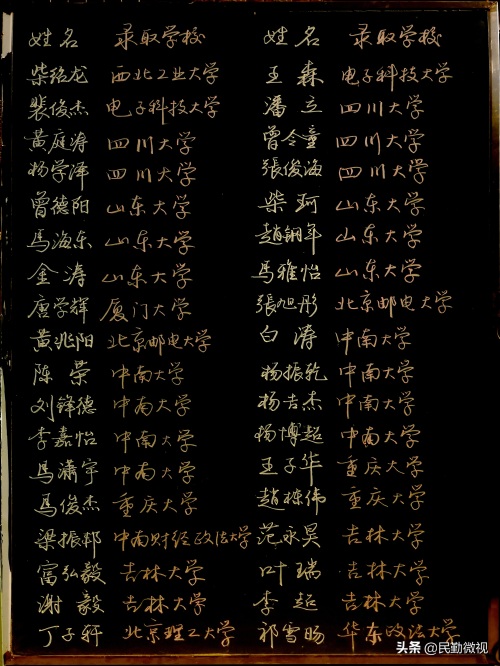 姓名 录取学校 姓名 录取学校
柴铭龙 西北工业大学 王森 电子科技大学
裴俊杰 电子科技大学 潘立 四川大学
黄庭涛 四川大学 曾令童 四川大学
杨学泽 四川大学 張俊海 四川大学
曾德阳 山东大学 柴珂 山东大学
馬海东 山东大学 趙钢年 山东大学
金涛 山东大学 馬雅怡 山东大学
唐学辉 厦门大学 張旭彤 北京邮电大学
黄兆阳 北京邮电大学 白涛 中南大学
陈荣 中南大学 杨振乾 中南大学
刘锋德 中南大学 杨吉杰 中南大学
李嘉怡 中南大学 杨博超 中南大学
馬瀟宇 中南大学 王子华 重庆大学
馬俊杰 重庆大学 趙栋伟 重庆大学
梁振邦 中南财经政法大学 范永昊 吉林大学
富弘毅 吉林大学 叶瑞 吉林大学
谢毅 吉林大学 李超 吉林大学
丁子轩 北京理工大学 祁雪旸 华东政法大学
头条 @民勤微视